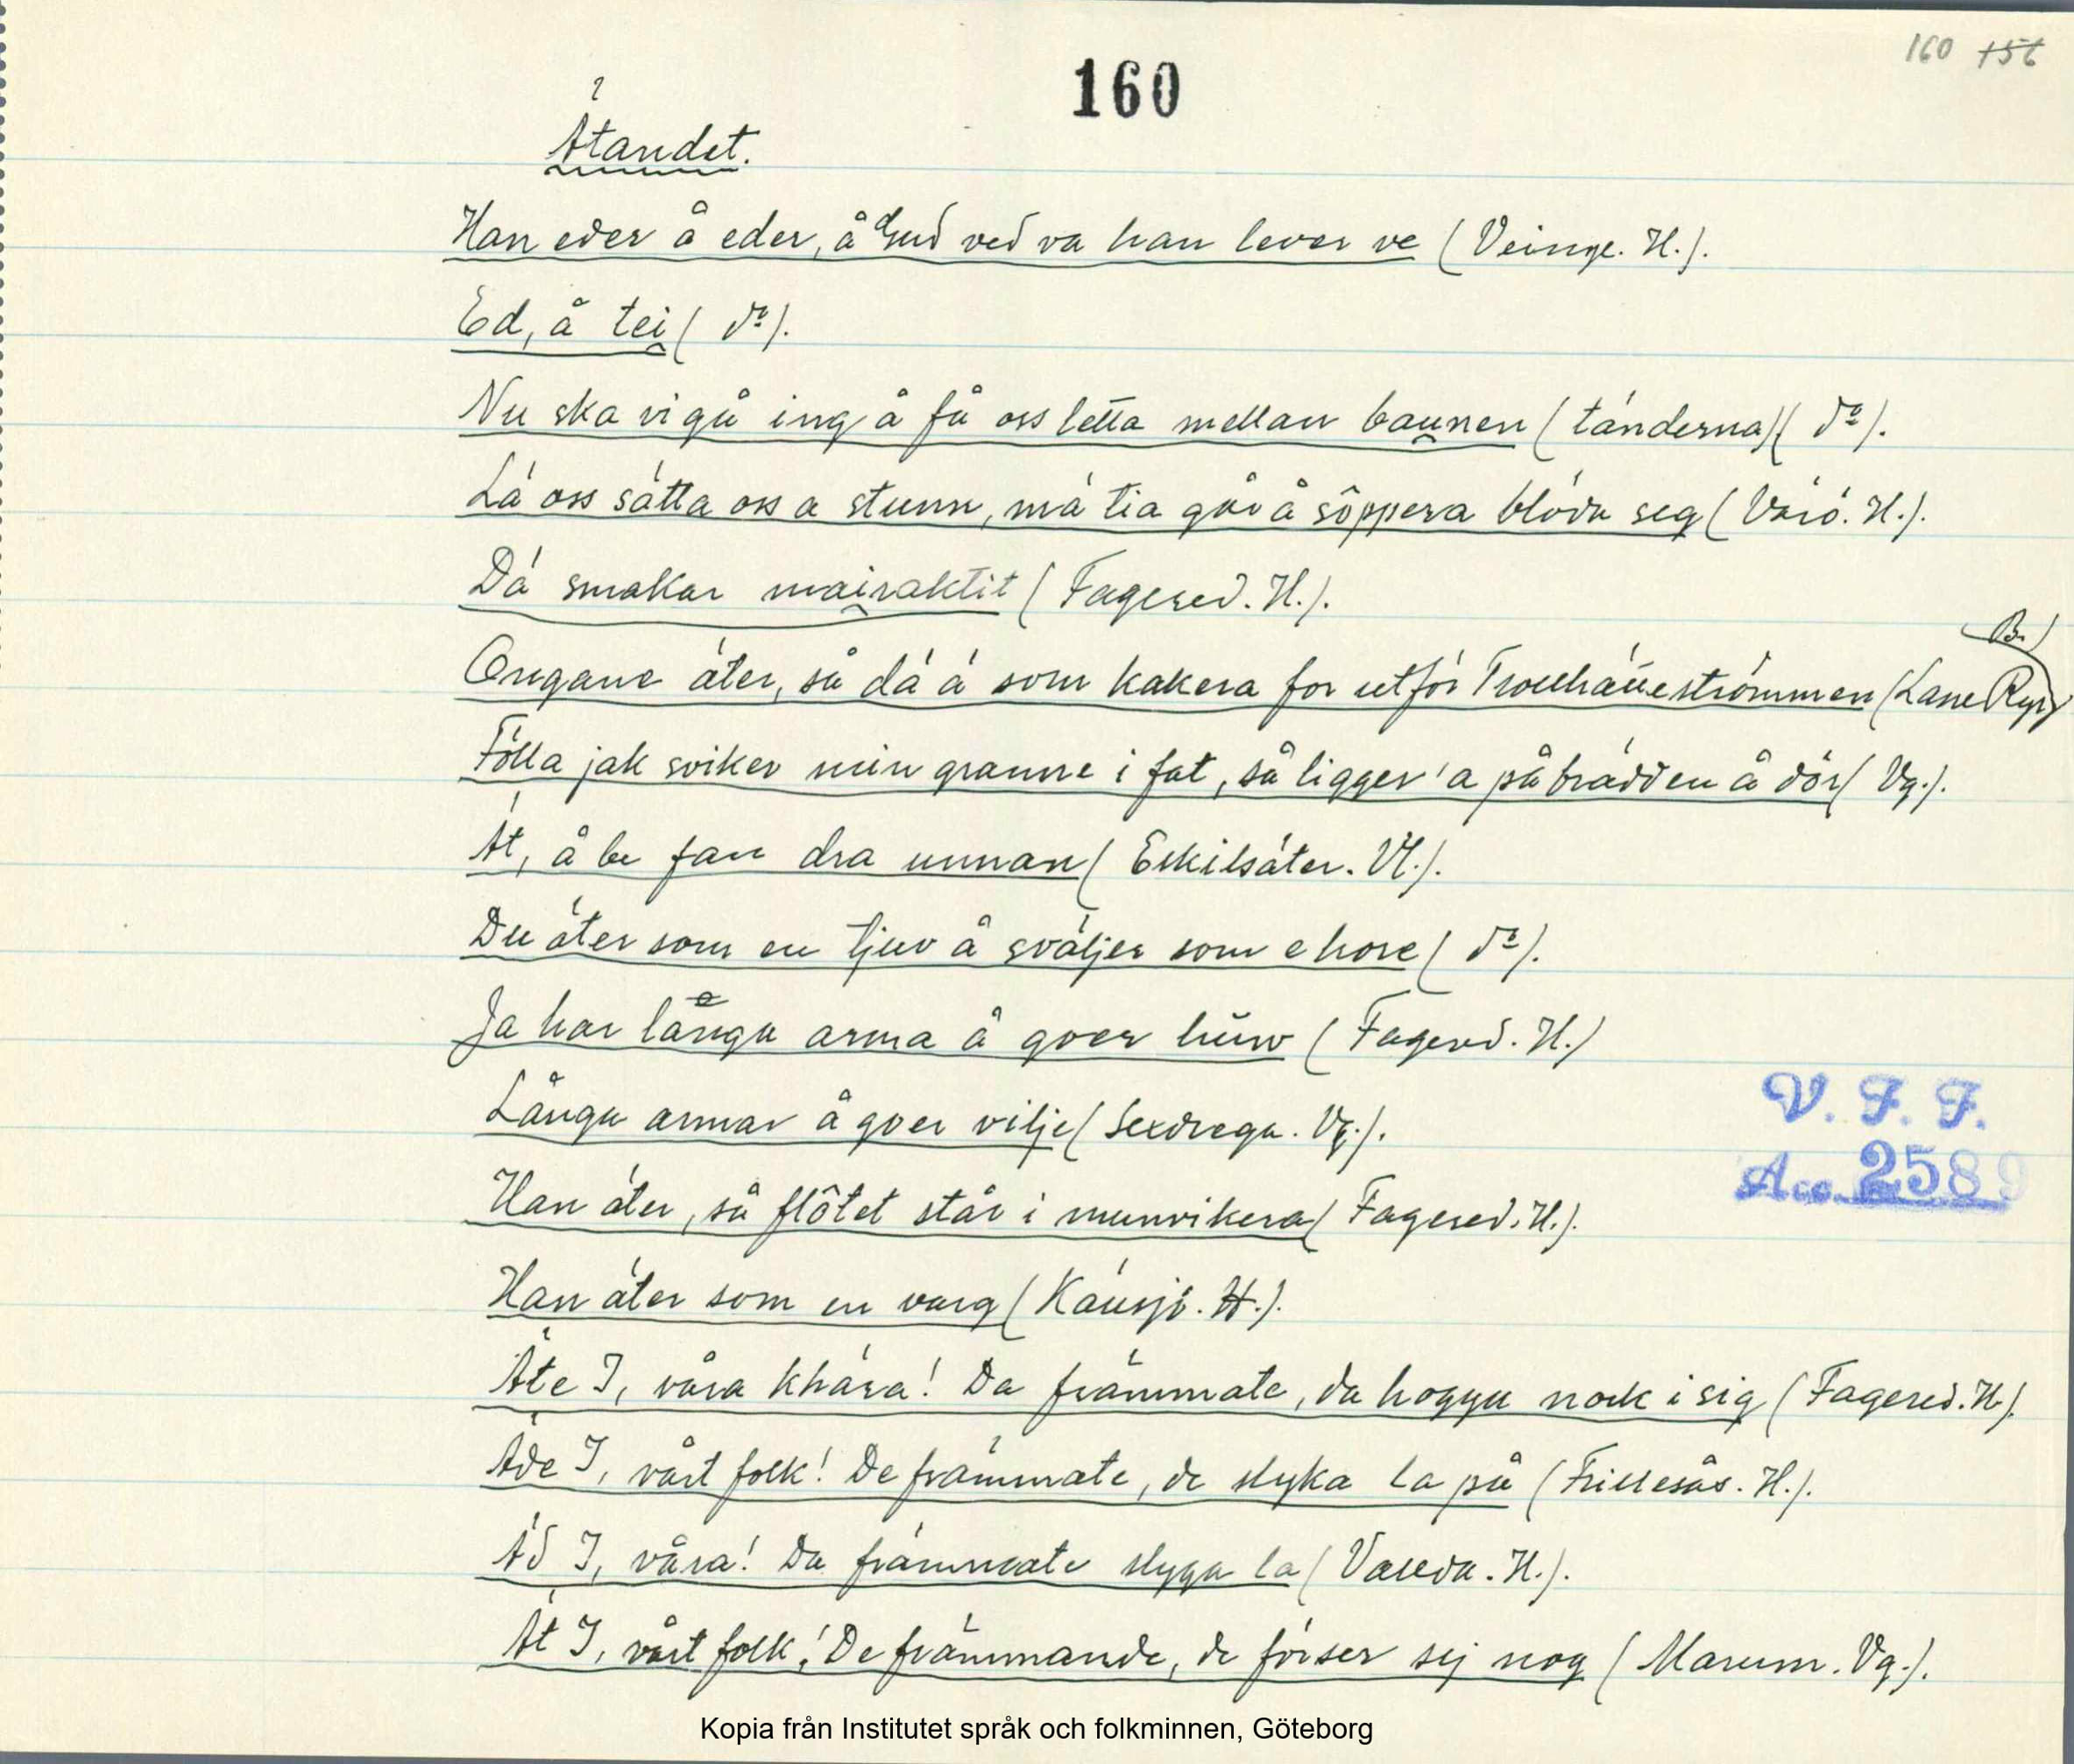 160 156
160
Ätandet.
Han eder å eder, å Gud ved va han lever ve (Veinge. H.).
Ed, å tei (do).
Nu ska vi gå ing å få oss letta mellan baunen (tänderna) (do).
Lä oss sätta oss a stunn, mä tia går å söppera blöda seg (Värö. H.).
Dä smakar mairaktit (Fagered. H.).
Ongane äter, så dä ä som kakera for utför Trollhätteströmmen (Lane Ryr. B.)
Fölla jak sviker min granne i fat, så ligger 'a på brädden å dör (Vg.).
Ät, å be fan dra unnan (Eskilsäter. Vl.).
Du äter som en tjuv å sväljer som e hore (do).
Ja har långa arma å goer huw (Fagered. H.)
Långa armar å goer vilje (Sexdrega. Vg.).
V. F. F.
Acc. 2589
Han äter, så flötet står i munvikera (Fagered. H.).
Han äter som en varg (Känsjö. H.).
Äte I, våra khära! Da främmate, da hogga nock i sig (Fagered. H.).
Äde I, vårt folk! De främmate, de slyka la på (Frillesås. H.).
Äd I, våra! Da främmate slyga la (Valda. H.).
Ät I, vårt folk! De främmande, de förser sej nog (Marum. Vg.).
Kopia från Institutet språk och folkminnen, Göteborg